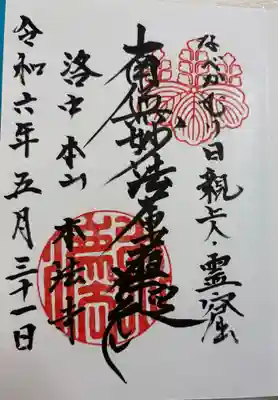 なべかむり日親上人・霊窟
南無妙法蓮華経
洛士 本山 本法寺
令和六年五月三十一日